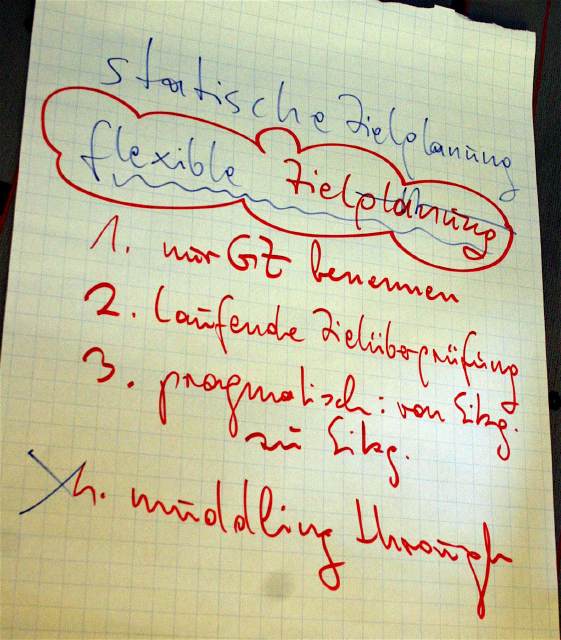 statische Zielplanung
flexible Zielplanung
1. nur GZ benennen
2. laufende Zielüberprüfung
3. pragmatisch: von Sitzg.
zu Sitzg.
4. muddling through